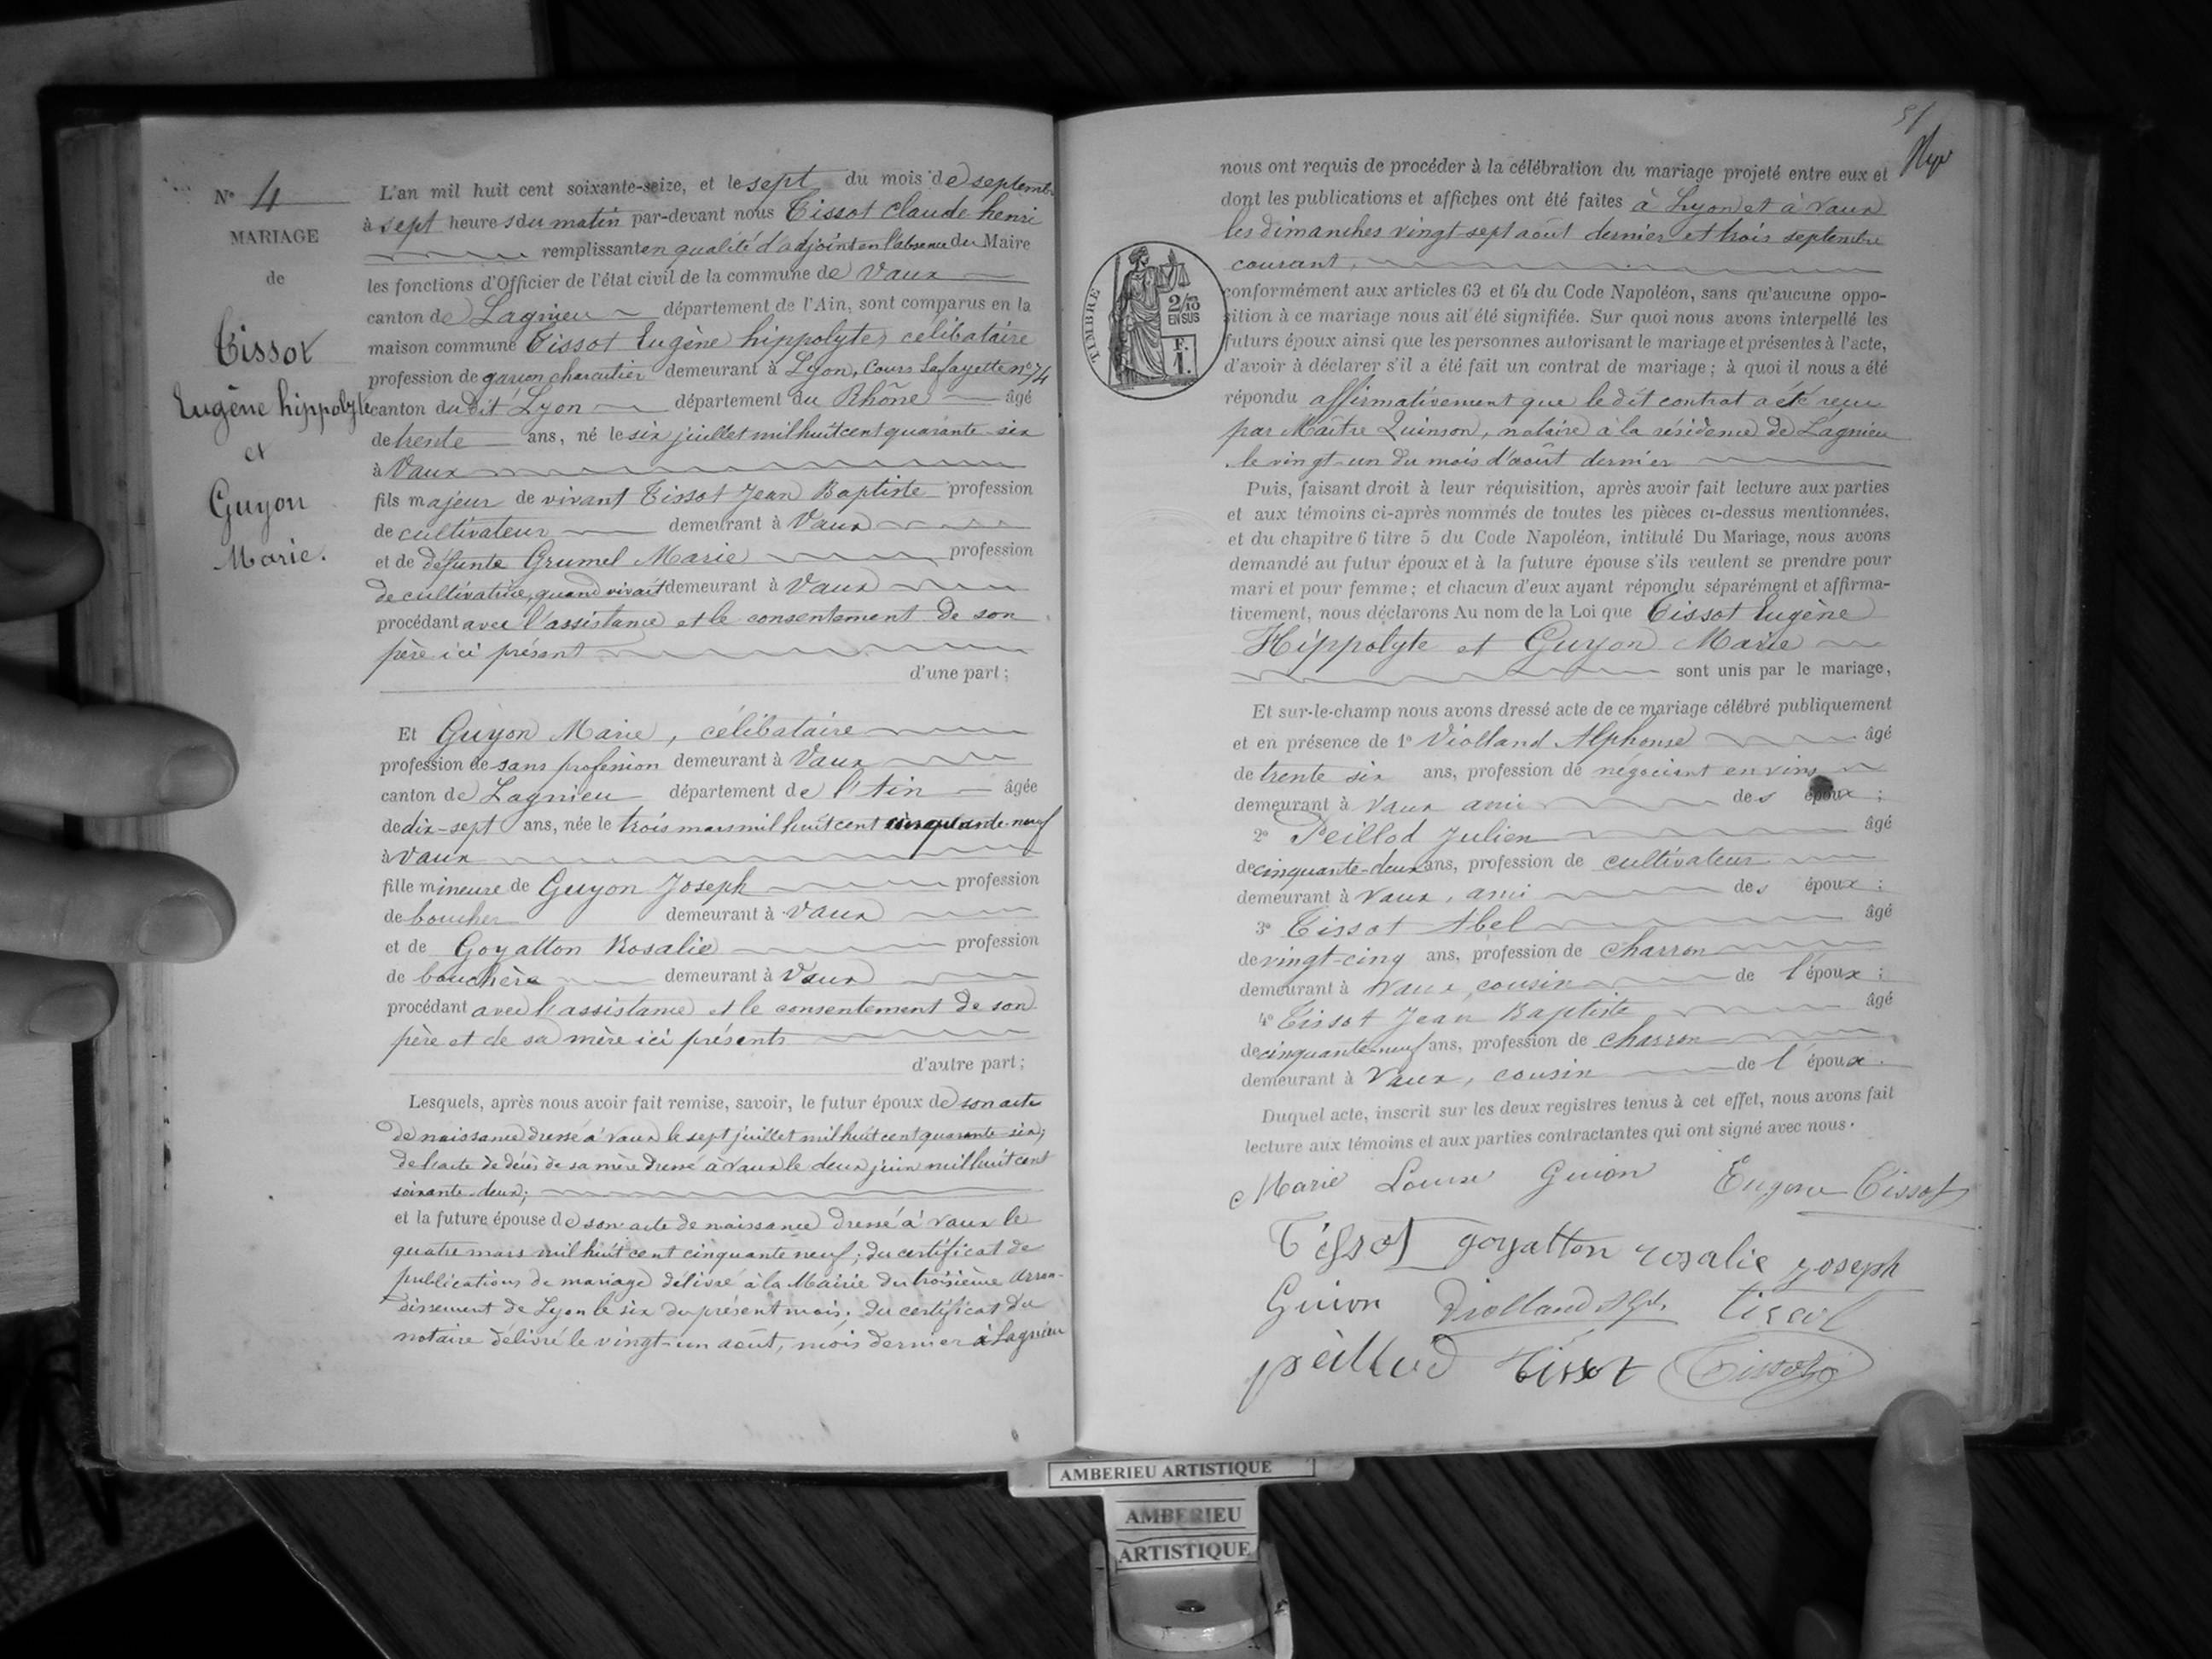 N° 4
MARIAGE
de
Tissot
Eugène hippolyte
et
Guyon
Marie.
L'an mil huit cent soixante-seize, et le sept du mois de septembre
à sept heures du matin par-devant nous Tissot Claude henri
remplissant en qualité d'adjoint en l'absence du Maire
les fonctions d'Officier de l'état civil de la commune de Vaux
canton de Lagnieu département de l'Ain, sont comparus en la
maison commune Tissot Eugène hippolyte, célibataire
profession de garçon charcutier demeurant à Lyon, Cours Lafayette n° 74
canton du dit Lyon département du Rhône âgé
de trente ans, né le six juillet mil huit cent quarante-six
à Vaux
fils majeur de vivant Tissot Jean Baptiste profession
de cultivateur demeurant à Vaux
et de défunte Grumel Marie profession
de cultivatrice, quand vivait demeurant à Vaux
procédant avec l'assistance et le consentement de son
père ici présent
d'une part;
Et Guyon Marie, célibataire
profession de sans profession demeurant à Vaux
canton de Lagnieu département de l'Ain âgée
de dix-sept ans, née le trois mars mil huit cent cinquante-neuf
à Vaux
fille mineure de Guyon Joseph profession
de boucher demeurant à Vaux
et de Goyatton Rosalie profession
de bouchère demeurant à Vaux
procédant avec l'assistance et le consentement de son
père et de sa mère ici présents
d'autre part;
Lesquels, après nous avoir fait remise, savoir, le futur époux de son acte
de naissance dressé à Vaux le sept juillet mil huit cent quarante-six;
de l'acte de décès de sa mère dressé à Vaux le deux juin mil huit cent
soixante-deux;
et la future épouse de son acte de naissance dressé à Vaux le
quatre mars mil huit cent cinquante neuf; du certificat de
publications de mariage délivré à la Mairie du troisième arron-
dissement de Lyon le six du présent mois; du certificat du
notaire délivré le vingt-un août, mois dernier à Lagnieu
51
nous ont requis de procéder à la célébration du mariage projeté entre eux et
dont les publications et affiches ont été faites à Lyon et à Vaux
les dimanches vingt-sept août dernier et trois septembre
courant,
TIMBRE
2/10
EN SUS
F.
1.
conformément aux articles 63 et 64 du Code Napoléon, sans qu'aucune oppo-
sition à ce mariage nous ait été signifiée. Sur quoi nous avons interpellé les
futurs époux ainsi que les personnes autorisant le mariage et présentes à l'acte,
d'avoir à déclarer s'il a été fait un contrat de mariage; à quoi il nous a été
répondu affirmativement que le dit contrat a été reçu
par Maître Quinson, notaire à la résidence de Lagnieu
le vingt-un du mois d'août dernier
Puis, faisant droit à leur réquisition, après avoir fait lecture aux parties
et aux témoins ci-après nommés de toutes les pièces ci-dessus mentionnées,
et du chapitre 6 titre 5 du Code Napoléon, intitulé Du Mariage, nous avons
demandé au futur époux et à la future épouse s'ils veulent se prendre pour
mari et pour femme; et chacun d'eux ayant répondu séparément et affirma-
tivement, nous déclarons Au nom de la Loi que Tissot Eugène
Hippolyte et Guyon Marie
sont unis par le mariage,
Et sur-le-champ nous avons dressé acte de ce mariage célébré publiquement
et en présence de 1° Violland Alphonse âgé
de trente six ans, profession de négociant en vins
demeurant à Vaux ami des époux;
2° Peillod Julien âgé
de cinquante-deux ans, profession de cultivateur
demeurant à Vaux, ami des époux;
3° Tissot Abel âgé
de vingt-cinq ans, profession de charron
demeurant à Vaux, cousin de l'époux;
4° Tissot Jean Baptiste âgé
de cinquante-neuf ans, profession de charron
demeurant à Vaux, cousin de l'époux.
Duquel acte, inscrit sur les deux registres tenus à cet effet, nous avons fait
lecture aux témoins et aux parties contractantes qui ont signé avec nous.
Marie Louise Guion Eugene Tissot
Tissot goyatton rosalie joseph
Guion Violland Alph. tissot
peillod tissot Tissot
AMBERIEU ARTISTIQUE
AMBERIEU
ARTISTIQUE